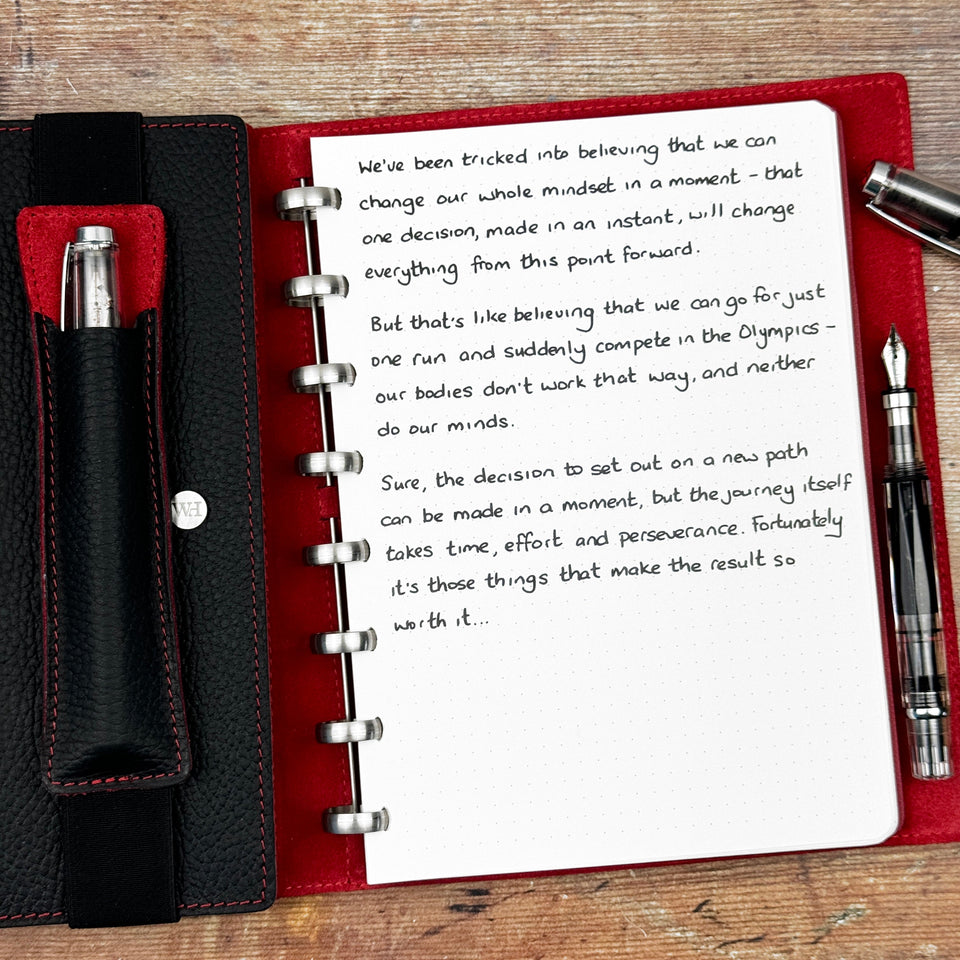 We've been tricked into believing that we can
change our whole mindset in a moment – that
one decision, made in an instant, will change
everything from this point forward.
But that's like believing that we can go for just
one run and suddenly compete in the Olympics –
our bodies don't work that way, and neither
do our minds.
Sure, the decision to set out on a new path
can be made in a moment, but the journey itself
takes time, effort and perseverance. Fortunately
it's those things that make the result so
worth it...
WH